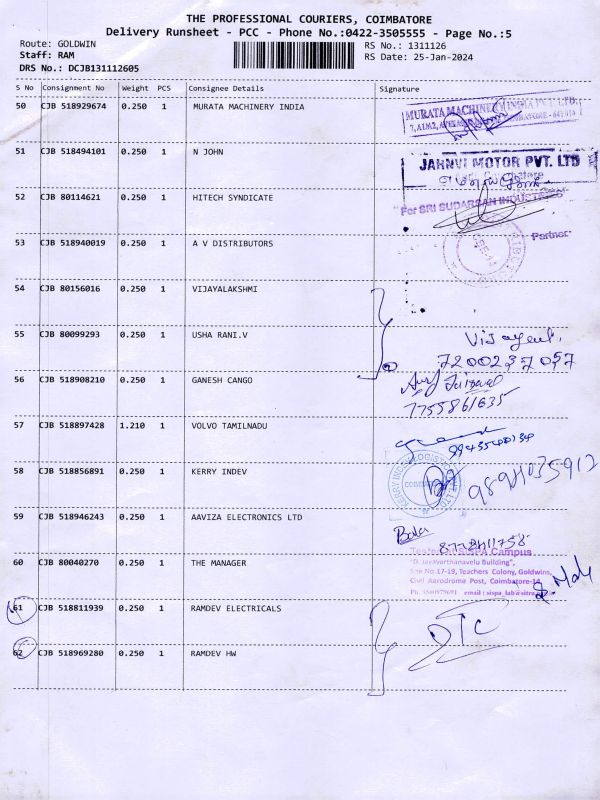 THE PROFESSIONAL COURIERS, COIMBATORE
Delivery Runsheet - PCC - Phone No.:0422-3505555 - Page No.:5
Route: GOLDWIN RS No.: 1311126
Staff: RAM RS Date: 25-Jan-2024
DRS No.: DCJB131112605
S No Consignment No Weight PCS Consignee Details Signature
50 CJB 518929674 0.250 1 MURATA MACHINERY INDIA MURATA MACHINERY INDIA PVT. LTD.
51 CJB 518494101 0.250 1 N JOHN JAHNVI MOTOR PVT. LTD
52 CJB 80114621 0.250 1 HITECH SYNDICATE
For SRI SUDARSAN INDUSTRIES
Partner
53 CJB 518940019 0.250 1 A V DISTRIBUTORS
54 CJB 80156016 0.250 1 VIJAYALAKSHMI
55 CJB 80099293 0.250 1 USHA RANI.V
7200237057
56 CJB 518908210 0.250 1 GANESH CANGO
7755861635
57 CJB 518897428 1.210 1 VOLVO TAMILNADU
58 CJB 518856891 0.250 1 KERRY INDEV KERRY INDEV LOGISTICS PVT LTD
59 CJB 518946243 0.250 1 AAVIZA ELECTRONICS LTD
Bala
SISPA Campus
"D.Jayavarthanavelu Building",
Site No.17-19, Teachers Colony, Goldwins,
Civil Aerodrome Post, Coimbatore-14
60 CJB 80040270 0.250 1 THE MANAGER
61 CJB 518811939 0.250 1 RAMDEV ELECTRICALS
62 CJB 518969280 0.250 1 RAMDEV HW